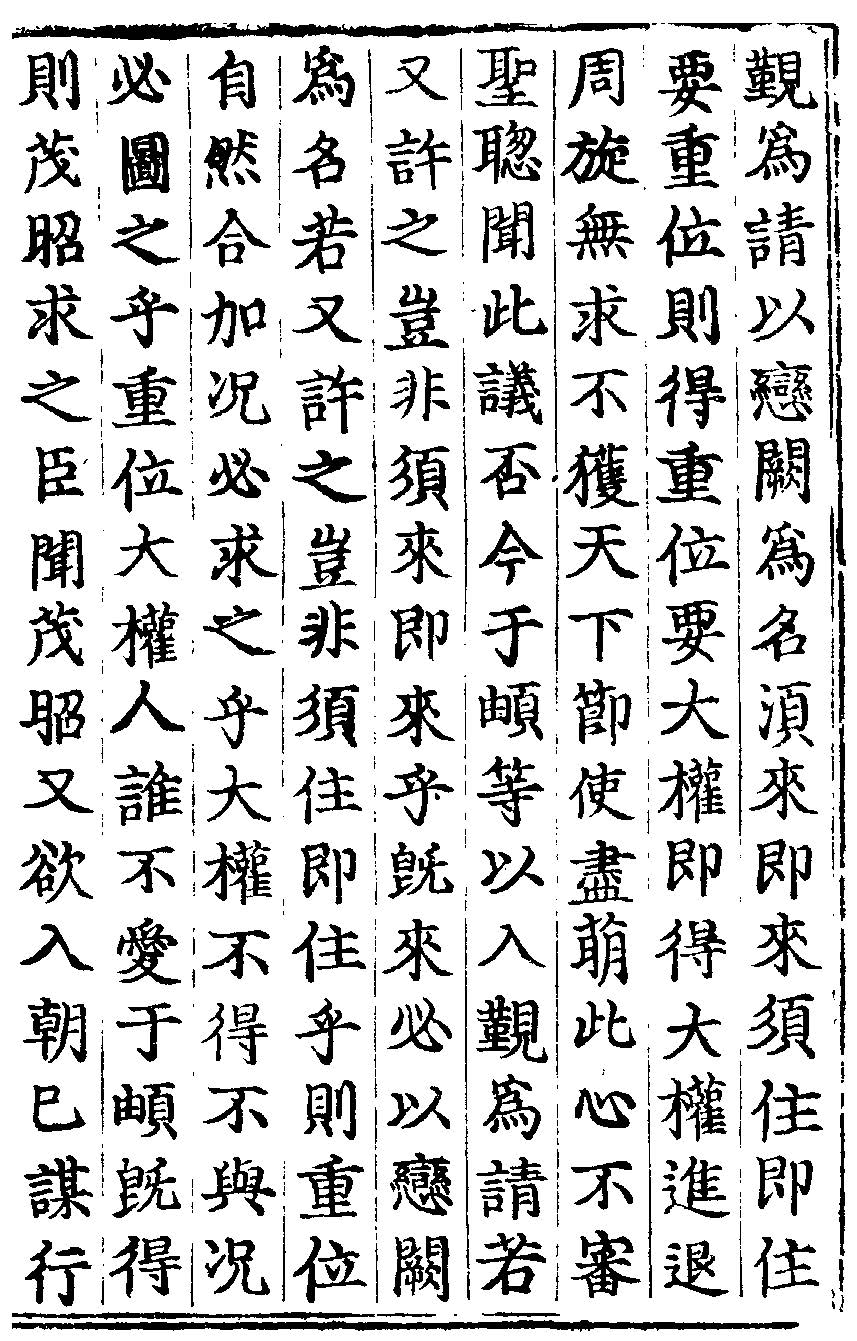 覲爲請以戀闕爲名湏來即來須住即住
要重位則得重位要大權即得大權進退
周旋無求不獲天下節使盡萌此心不審
聖聦聞此議否今于頔等以入覲爲請若
又許之豈非須來即來乎旣來必以戀闕
爲名若又許之豈非須住即住乎則重位
自然合加况必求之乎大權不得不與况
必圖之乎重位大權人誰不愛于頔旣得
則茂昭求之臣聞茂昭又欲入朝已謀行